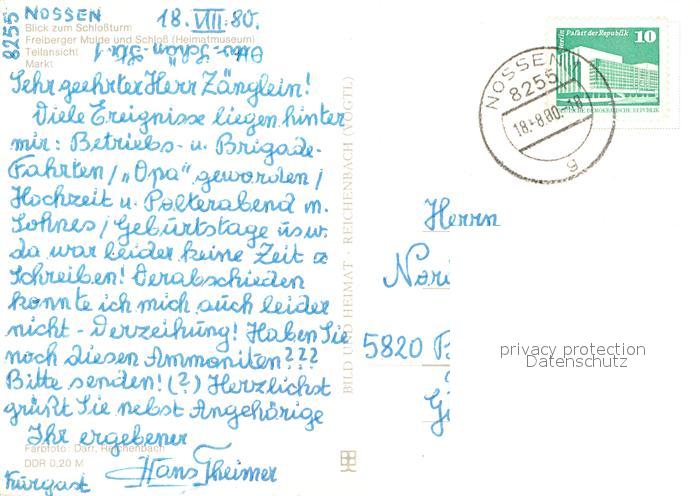 8255 NOSSEN 18. VIII. 80.
Blick zum Schloßturm
Freiberger Mulde und Schloß (Heimatmuseum)
Teilansicht
Markt
Otto-Schön-Str. 1
Sehr geehrter Herr Zänglein!
Viele Ereignisse liegen hinter
mir: Betriebs- u. Brigade-
Fahrten / "Opa" geworden /
Hochzeit u. Polterabend m.
Sohnes / Geburtstage usw.
da war leider keine Zeit z
Schreiben! Verabschieden
konnte ich mich auch leider
nicht - Verzeihung! Haben Sie
noch diesen Ammoniten???
Bitte senden! (?) Herzlichst
grüßt Sie nebst Angehörige
Ihr ergebener
Farbfoto: Darr, Reichenbach
DDR 0,20 M
Hans Theimer
Kurgast
BILD UND HEIMAT · REICHENBACH (VOGTL)
Berlin Palast der Republik 10
DEUTSCHE DEMOKRATISCHE REPUBLIK
NOSSEN
8255
18.-8.80.-18
g
Herrn
Nori
5820 B
G
privacy protection
Datenschutz